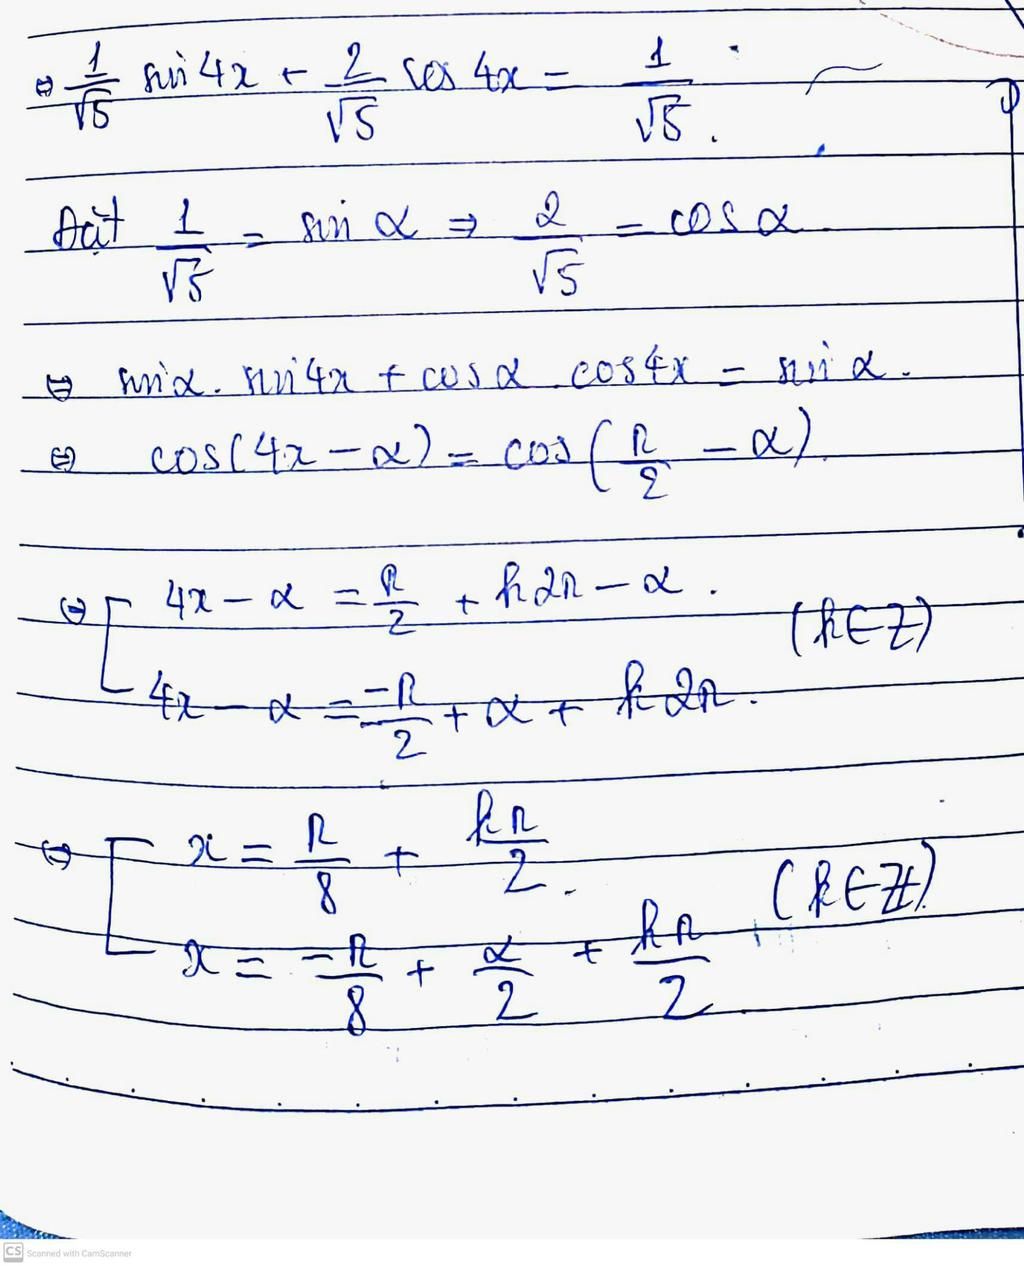 ⇔ 1/√5 sin 4x + 2/√5 cos 4x = 1/√5.
Đặt 1/√5 = sin α ⇒ 2/√5 = cos α
⇔ sin α. sin 4x + cos α. cos 4x = sin α.
⇔ cos(4x − α) = cos(π/2 − α).
⇔ [ 4x − α = π/2 + k2π − α.
(k∈Z)
4x − α = −π/2 + α + k2π.
⇔ [ x = π/8 + kπ/2.
(k∈Z).
x = −π/8 + α/2 + kπ/2
CS Scanned with CamScanner